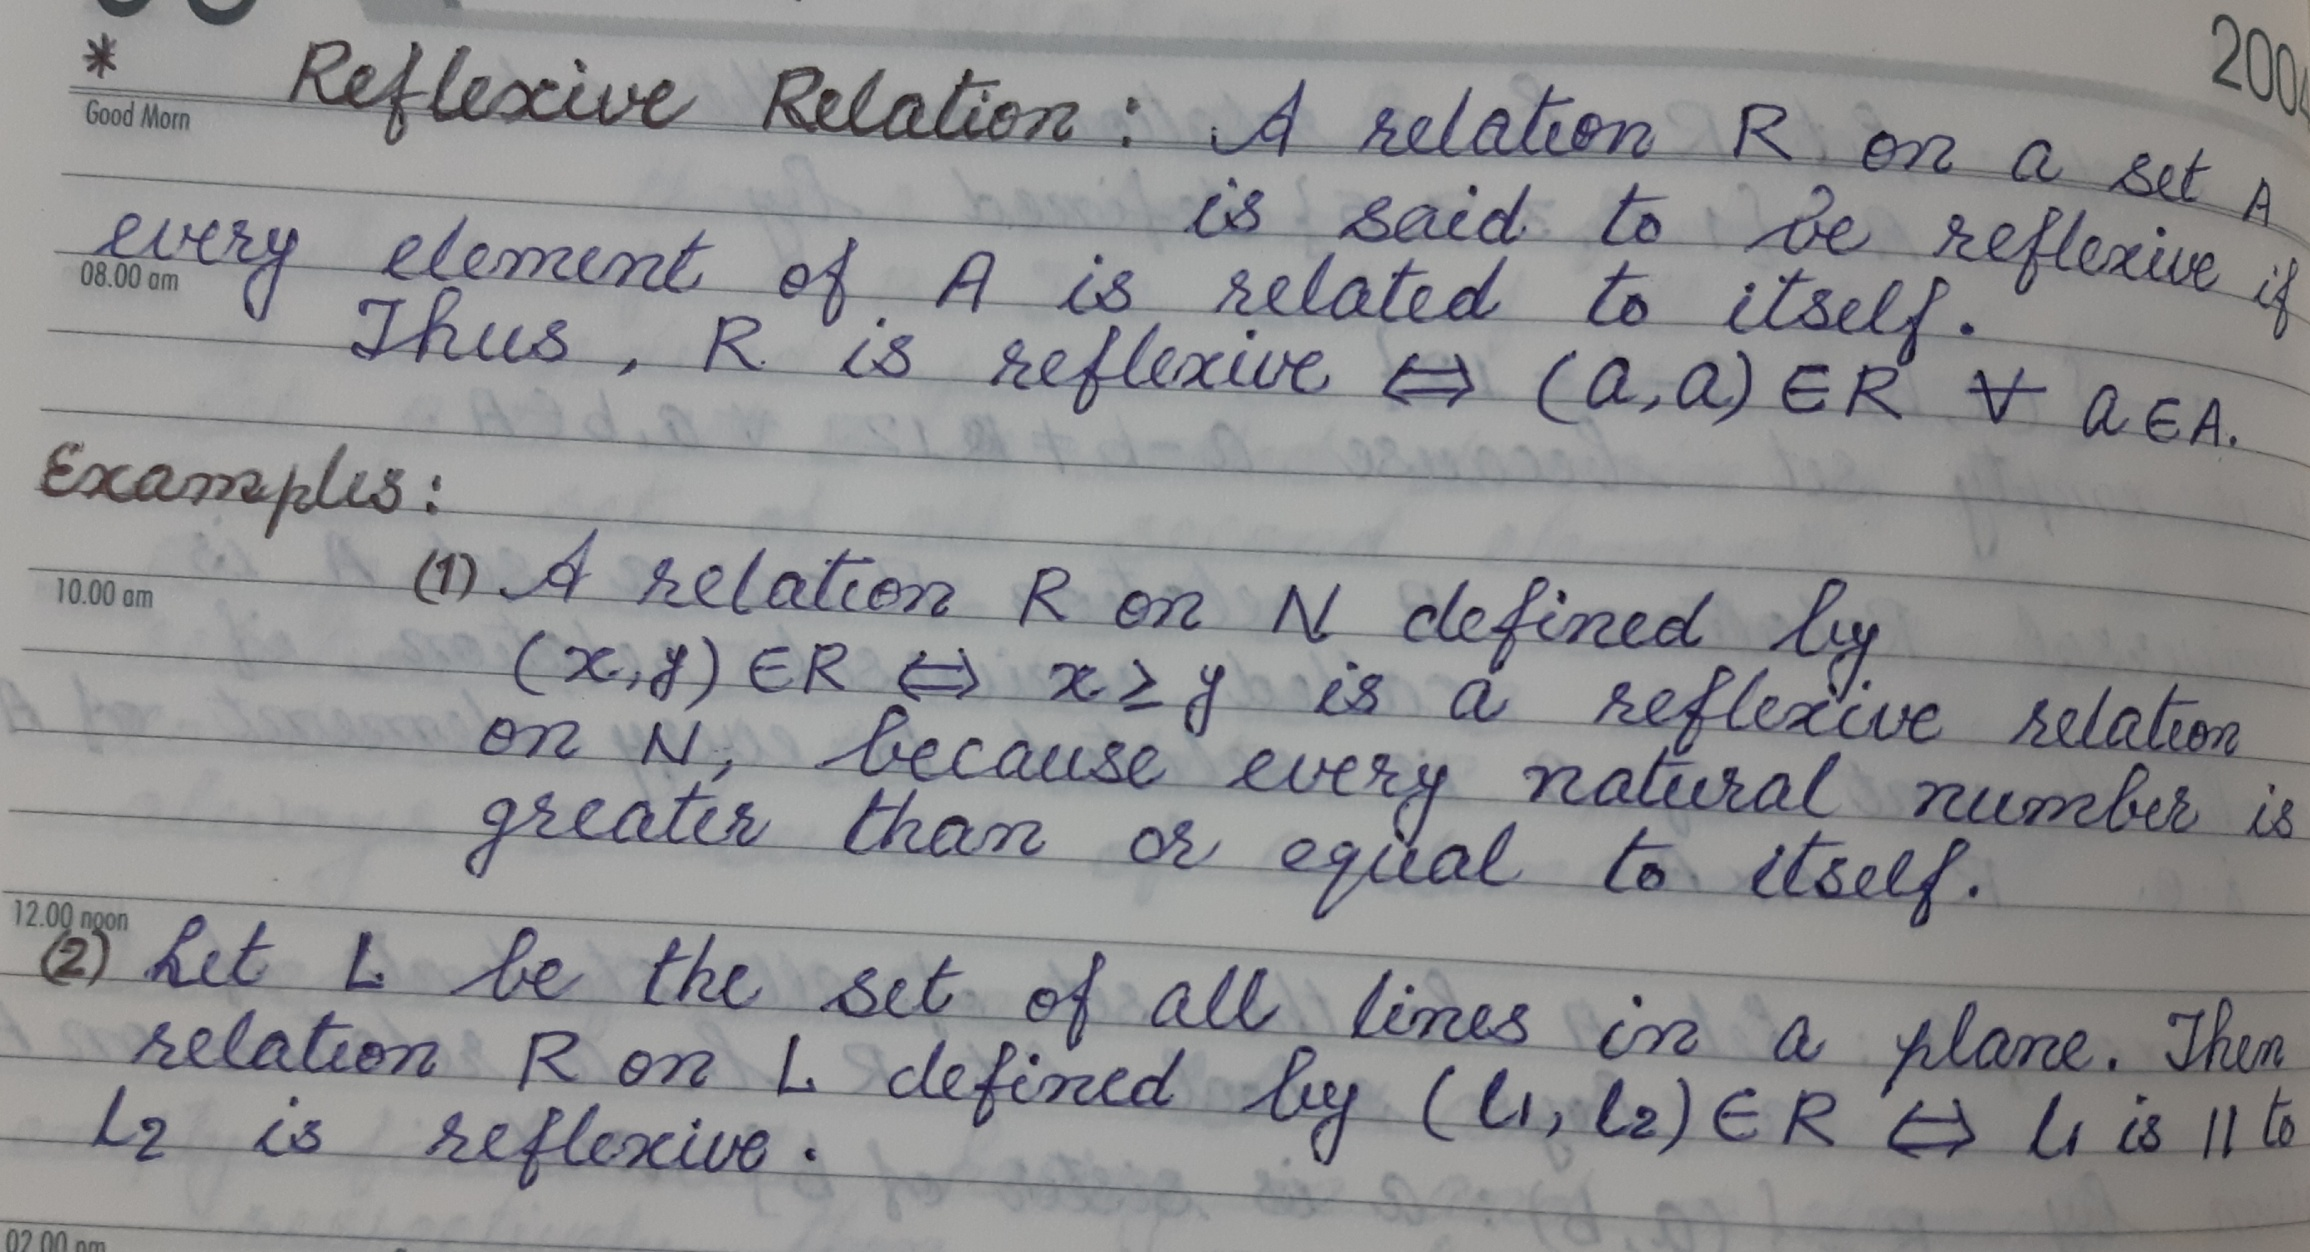 2004
* Reflexive Relation : A relation R on a set A
Good Morn
is said to be reflexive if
every element of A is related to itself.
08.00 am
Thus, R is reflexive ⇔ (a,a) ∈ R ∀ a ∈ A.
Examples:
(1) A relation R on N defined by
10.00 am
(x,y) ∈ R ⇔ x ≥ y is a reflexive relation
on N, because every natural number is
greater than or equal to itself.
12.00 noon
(2) Let L be the set of all lines in a plane. Then
relation R on L defined by (l1, l2) ∈ R ⇔ l1 is || to
L2 is reflexive.
02.00 pm